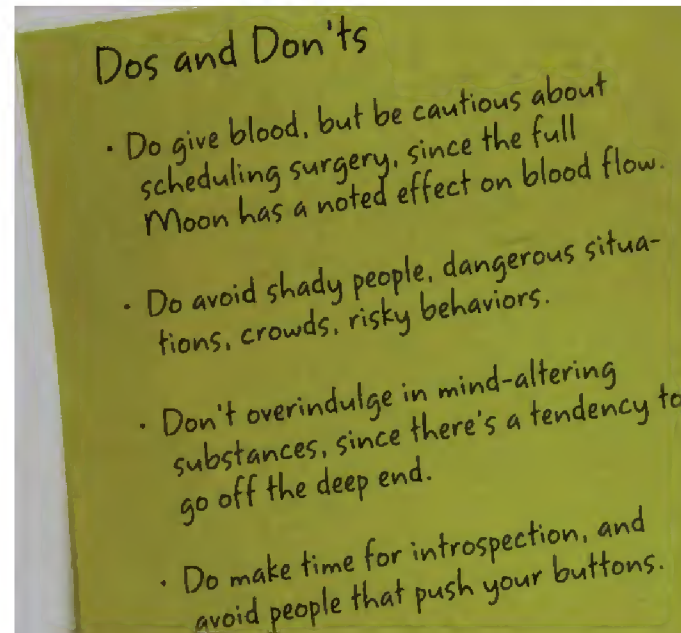 Dos and Don'ts
· Do give blood, but be cautious about
scheduling surgery, since the full
Moon has a noted effect on blood flow.
· Do avoid shady people, dangerous situa-
tions, crowds, risky behaviors.
· Don't overindulge in mind-altering
substances, since there's a tendency to
go off the deep end.
· Do make time for introspection, and
avoid people that push your buttons.